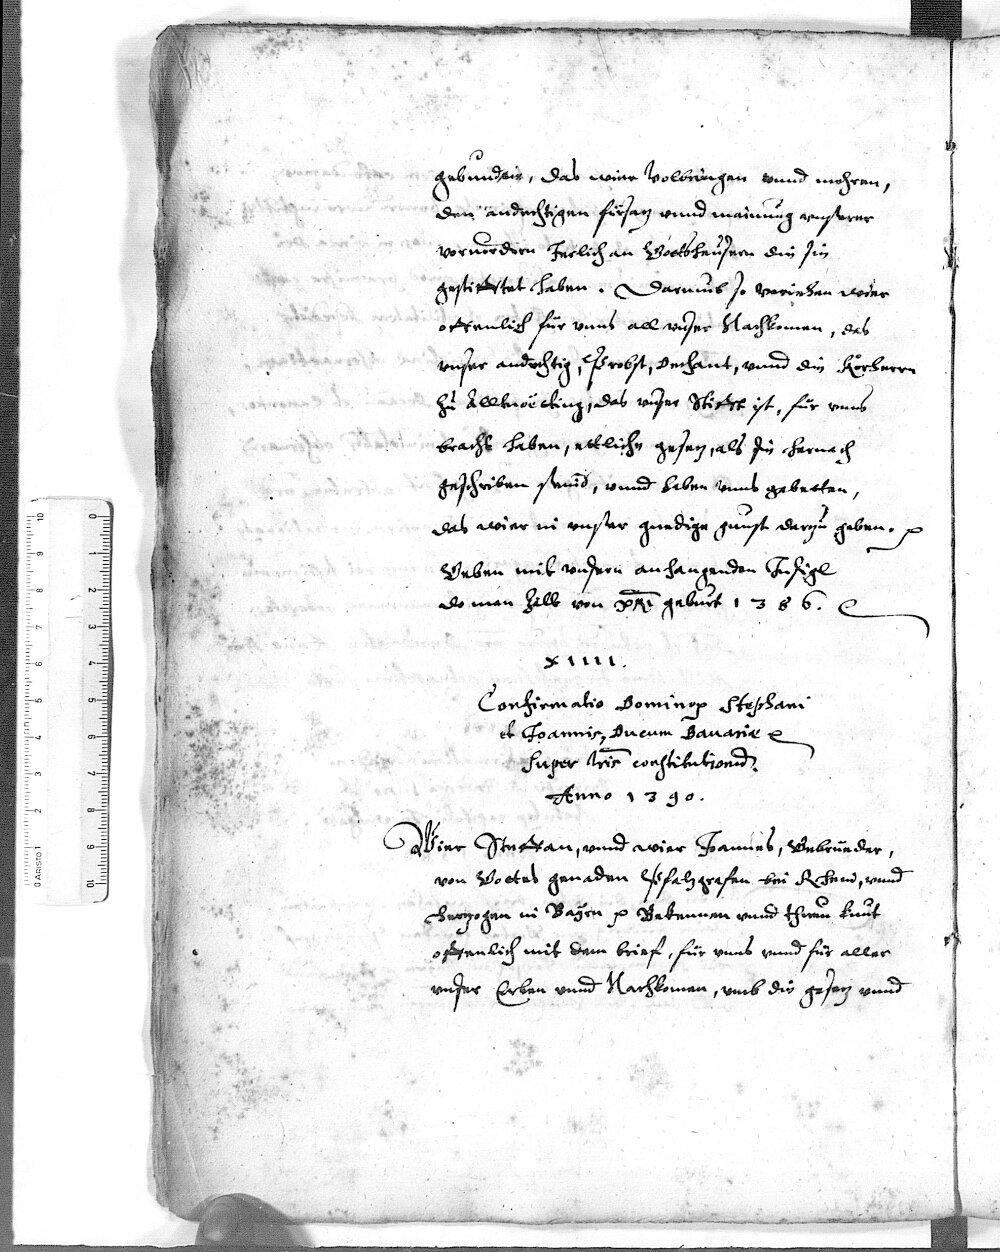 gebunden, das wier volbringen vnnd mehren,
den andechtigen fürsaz vnnd mainung vnserer
vorvordern Ierlich an Gottsheusern die sie
gestifftet haben. Darumb so veriehen wier
offenlich für vnns all vnser Nachkomen, das
vnser andechtig, Probst, Dechant, vnnd die Korherrn
zu Alltnöetting, das vnser Stifft ist, für vnns
bracht haben, ettliche gesez, als sie hernach
geschriben seind, vnnd haben vnns gebetten,
das wier in vnser gnedige gunst darzu geben. p
Geben mit vnsern anhangenden Insigl
do man zellt von xpi geburt 1386.
XIIII.
Confirmatio Dominor Stephani
et Joannis, Ducum Bavariæ
super tris constitutionib
Anno 1390.
Wier Steffan, vnnd wier Joannes, Gebrüeder,
von Gottes genaden Pfalzgrafen bei Rhein, vnnd
Herzogen in Bayrn p Bekennen vnnd thuen kunt
offenlich mit dem brief, für vnns vnnd für aller
vnser Erben vnnd Nachkomen, vmb die gesez vnnd